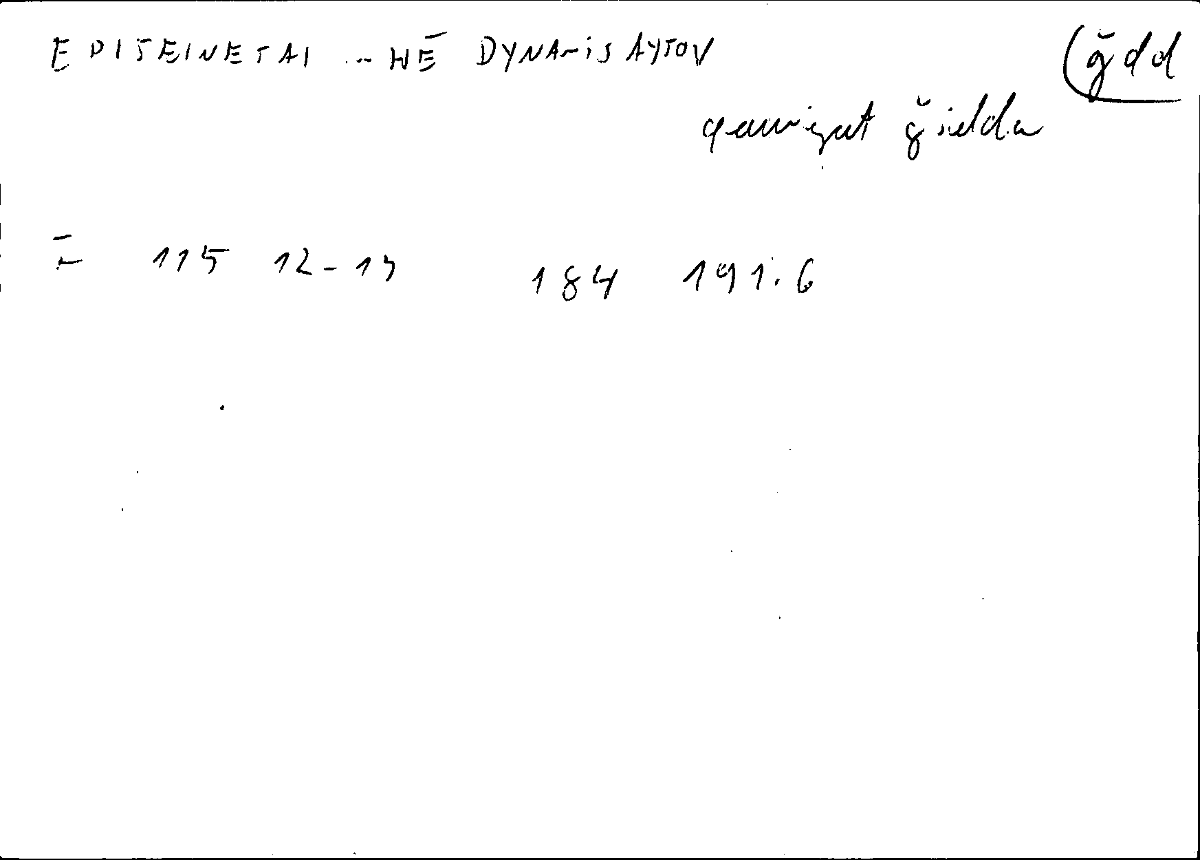 EPITEINETAI .. HĒ DYNAMIS AYTOV
(ǧdd
qawiyat ǧidda
115 12-13 184 191.6